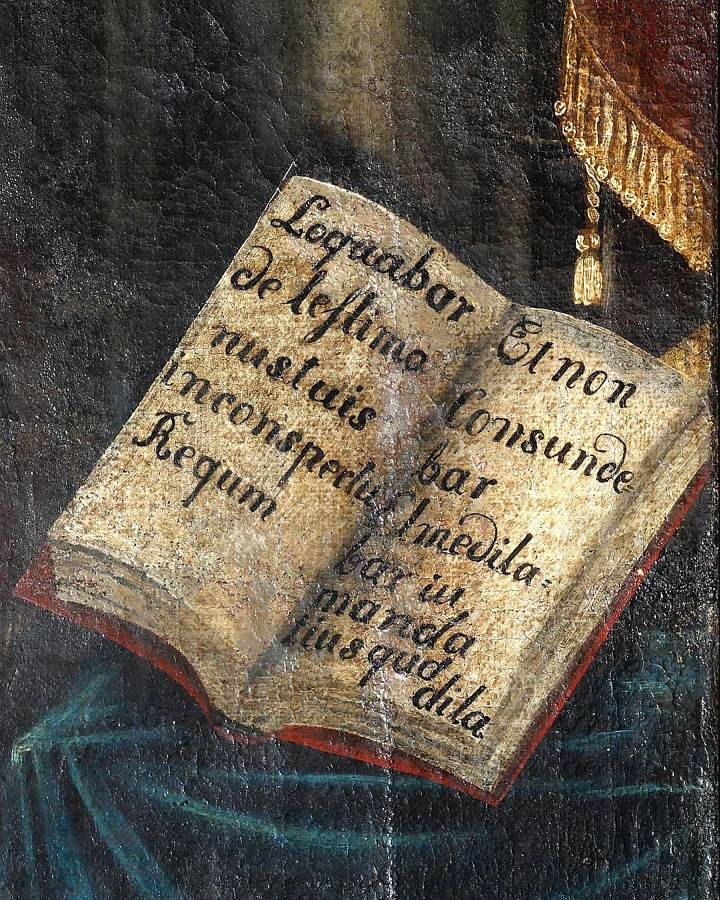 Loquabar
de testimo
nus tuis
inconspectu
Regum
Et non
Consunde-
bar
Et medita-
bar in
manda
tius quo
dila